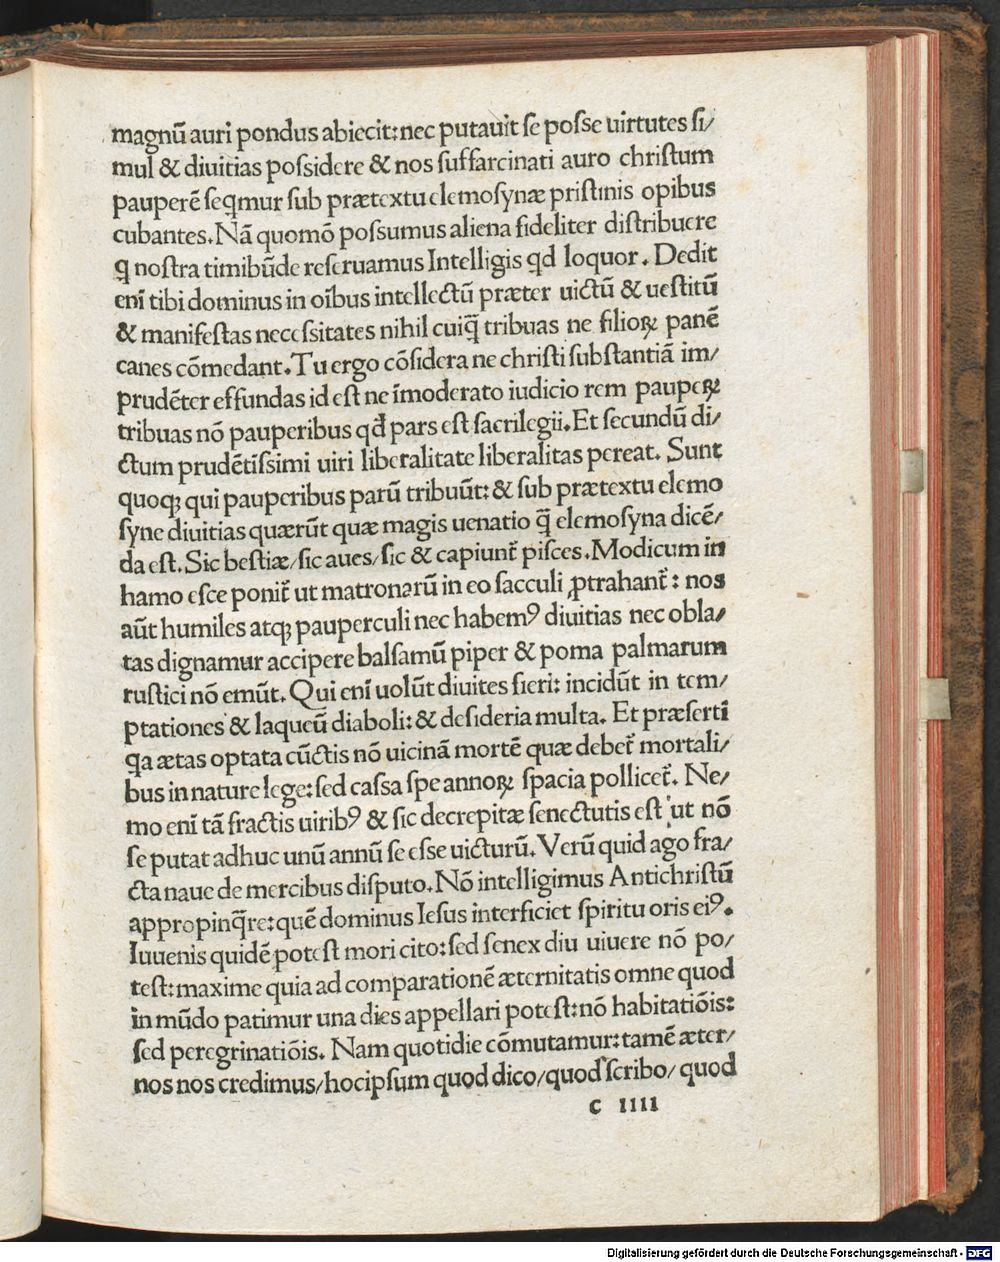 magnū auri pondus abiecit:nec putauit ſe poſſe uirtutes ſi/
mul & diuitias poſſidere & nos ſuffarcinati auro chriſtum
pauperē ſeq̄mur ſub prætextu elemoſynæ priſtinis opibus
cubantes.Nā quomō poſſumus aliena fideliter diſtribuere
q̄ noſtra timibūde reſeruamus Intelligis qd̄ loquor. Dedit
enī tibi dominus in oībus intellectū præter uictū & ueſtitū
& manifeſtas neceſſitates nihil cuiq̄ tribuas ne filioꝝ panē
canes cōmedant.Tu ergo cōſidera ne chriſti ſubſtantiā im/
prudēter effundas id eſt ne īmoderato iudicio rem pauperꝝ
tribuas nō pauperibus qd̄ pars eſt ſacrilegii.Et ſecundū di/
ctum prudētiſſimi uiri liberalitate liberalitas pereat. Sunt
quoqꝫ qui pauperibus parū tribuūt:& ſub prætextu elemo
ſyne diuitias quærūt quæ magis uenatio q̄ elemoſyna dicē/
da eſt.Sic beſtiæ/ſic aues/ſic & capiunt̄ piſces.Modicum in
hamo eſce ponit̄ ut matronarū in eo ſacculi ꝓtrahant̄: nos
aūt humiles atqꝫ pauperculi nec habemꝰ diuitias nec obla/
tas dignamur accipere balſamū piper & poma palmarum
ruſtici nō emūt.Qui enī uolūt diuites fieri: incidūt in tem/
ptationes & laqueū diaboli:& deſideria multa. Et præſertī
qa ætas optata cūctis nō uicinā mortē quæ debet̄ mortali/
bus in nature lege:ſed caſſa ſpe annoꝝ ſpacia pollicet̄. Ne/
mo enī tā fractis uiribꝰ & ſic decrepitæ ſenectutis eſt ut nō
ſe putat adhuc unū annū ſe eſſe uicturū.Verū quid ago fra/
cta naue de mercibus diſputo.Nō intelligimus Antichriſtū
appropinq̄re:quē dominus Ieſus interficiet ſpiritu oris eiꝰ.
Iuuenis quidē poteſt mori cito:ſed ſenex diu uiuere nō po/
teſt:maxime quia ad comparationē æternitatis omne quod
in mūdo patimur una dies appellari poteſt:nō habitatiōis:
ſed peregrinatiōis. Nam quotidie cōmutamur:tamē æter/
nos nos credimus/hocipſum quod dico/quod ſcribo/ quod
c IIII
Digitalisierung gefördert durch die Deutsche Forschungsgemeinschaft - DFG